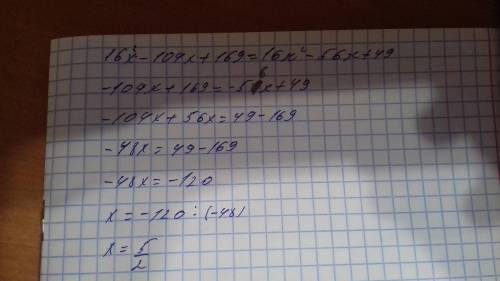 16x² - 104x + 169 = 16x² - 56x + 49
-104x + 169 = -56x + 49
-104x + 56x = 49 - 169
-48x = 49 - 169
-48x = -120
x = -120 : (-48)
x = 5/2